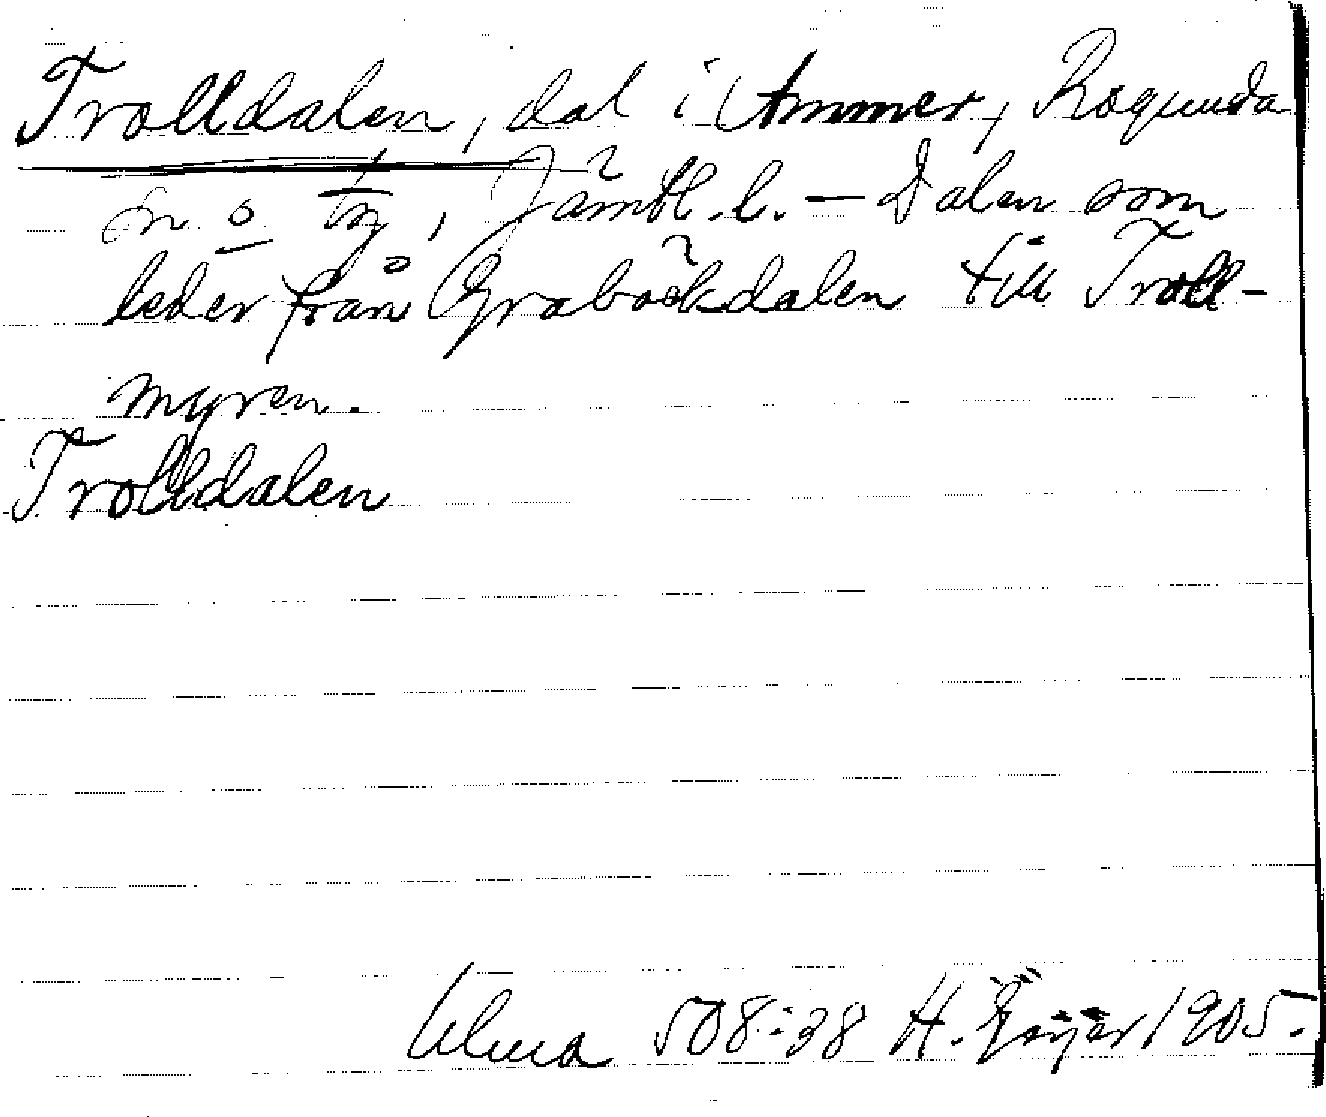 Trolldalen, dal i Ammer, Ragunda
sn o tg, Jämtl. l. – Dalen som
leder från Gråbäckdalen till Troll-
myren.
Trolldalen
Ulma 508:38 H. Geijer 1905.